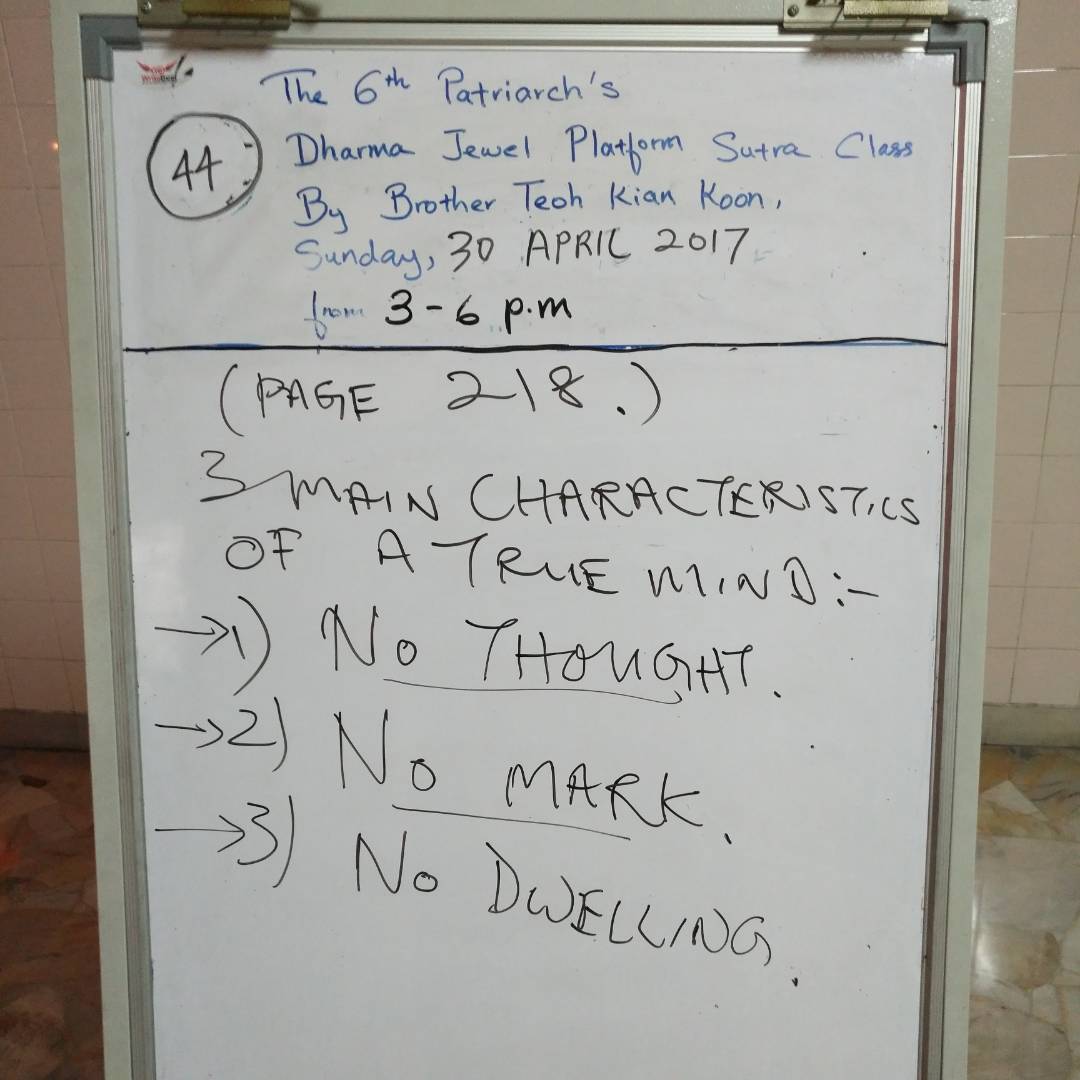 The 6th Patriarch's
44
Dharma Jewel Platform Sutra Class
By Brother Teoh Kian Koon,
Sunday, 30 APRIL 2017
from 3-6 p.m
(PAGE 218.)
3 MAIN CHARACTERISTICS
OF A TRUE MIND:-
→1) No THOUGHT.
→2) No MARK.
→3) No DWELLING.